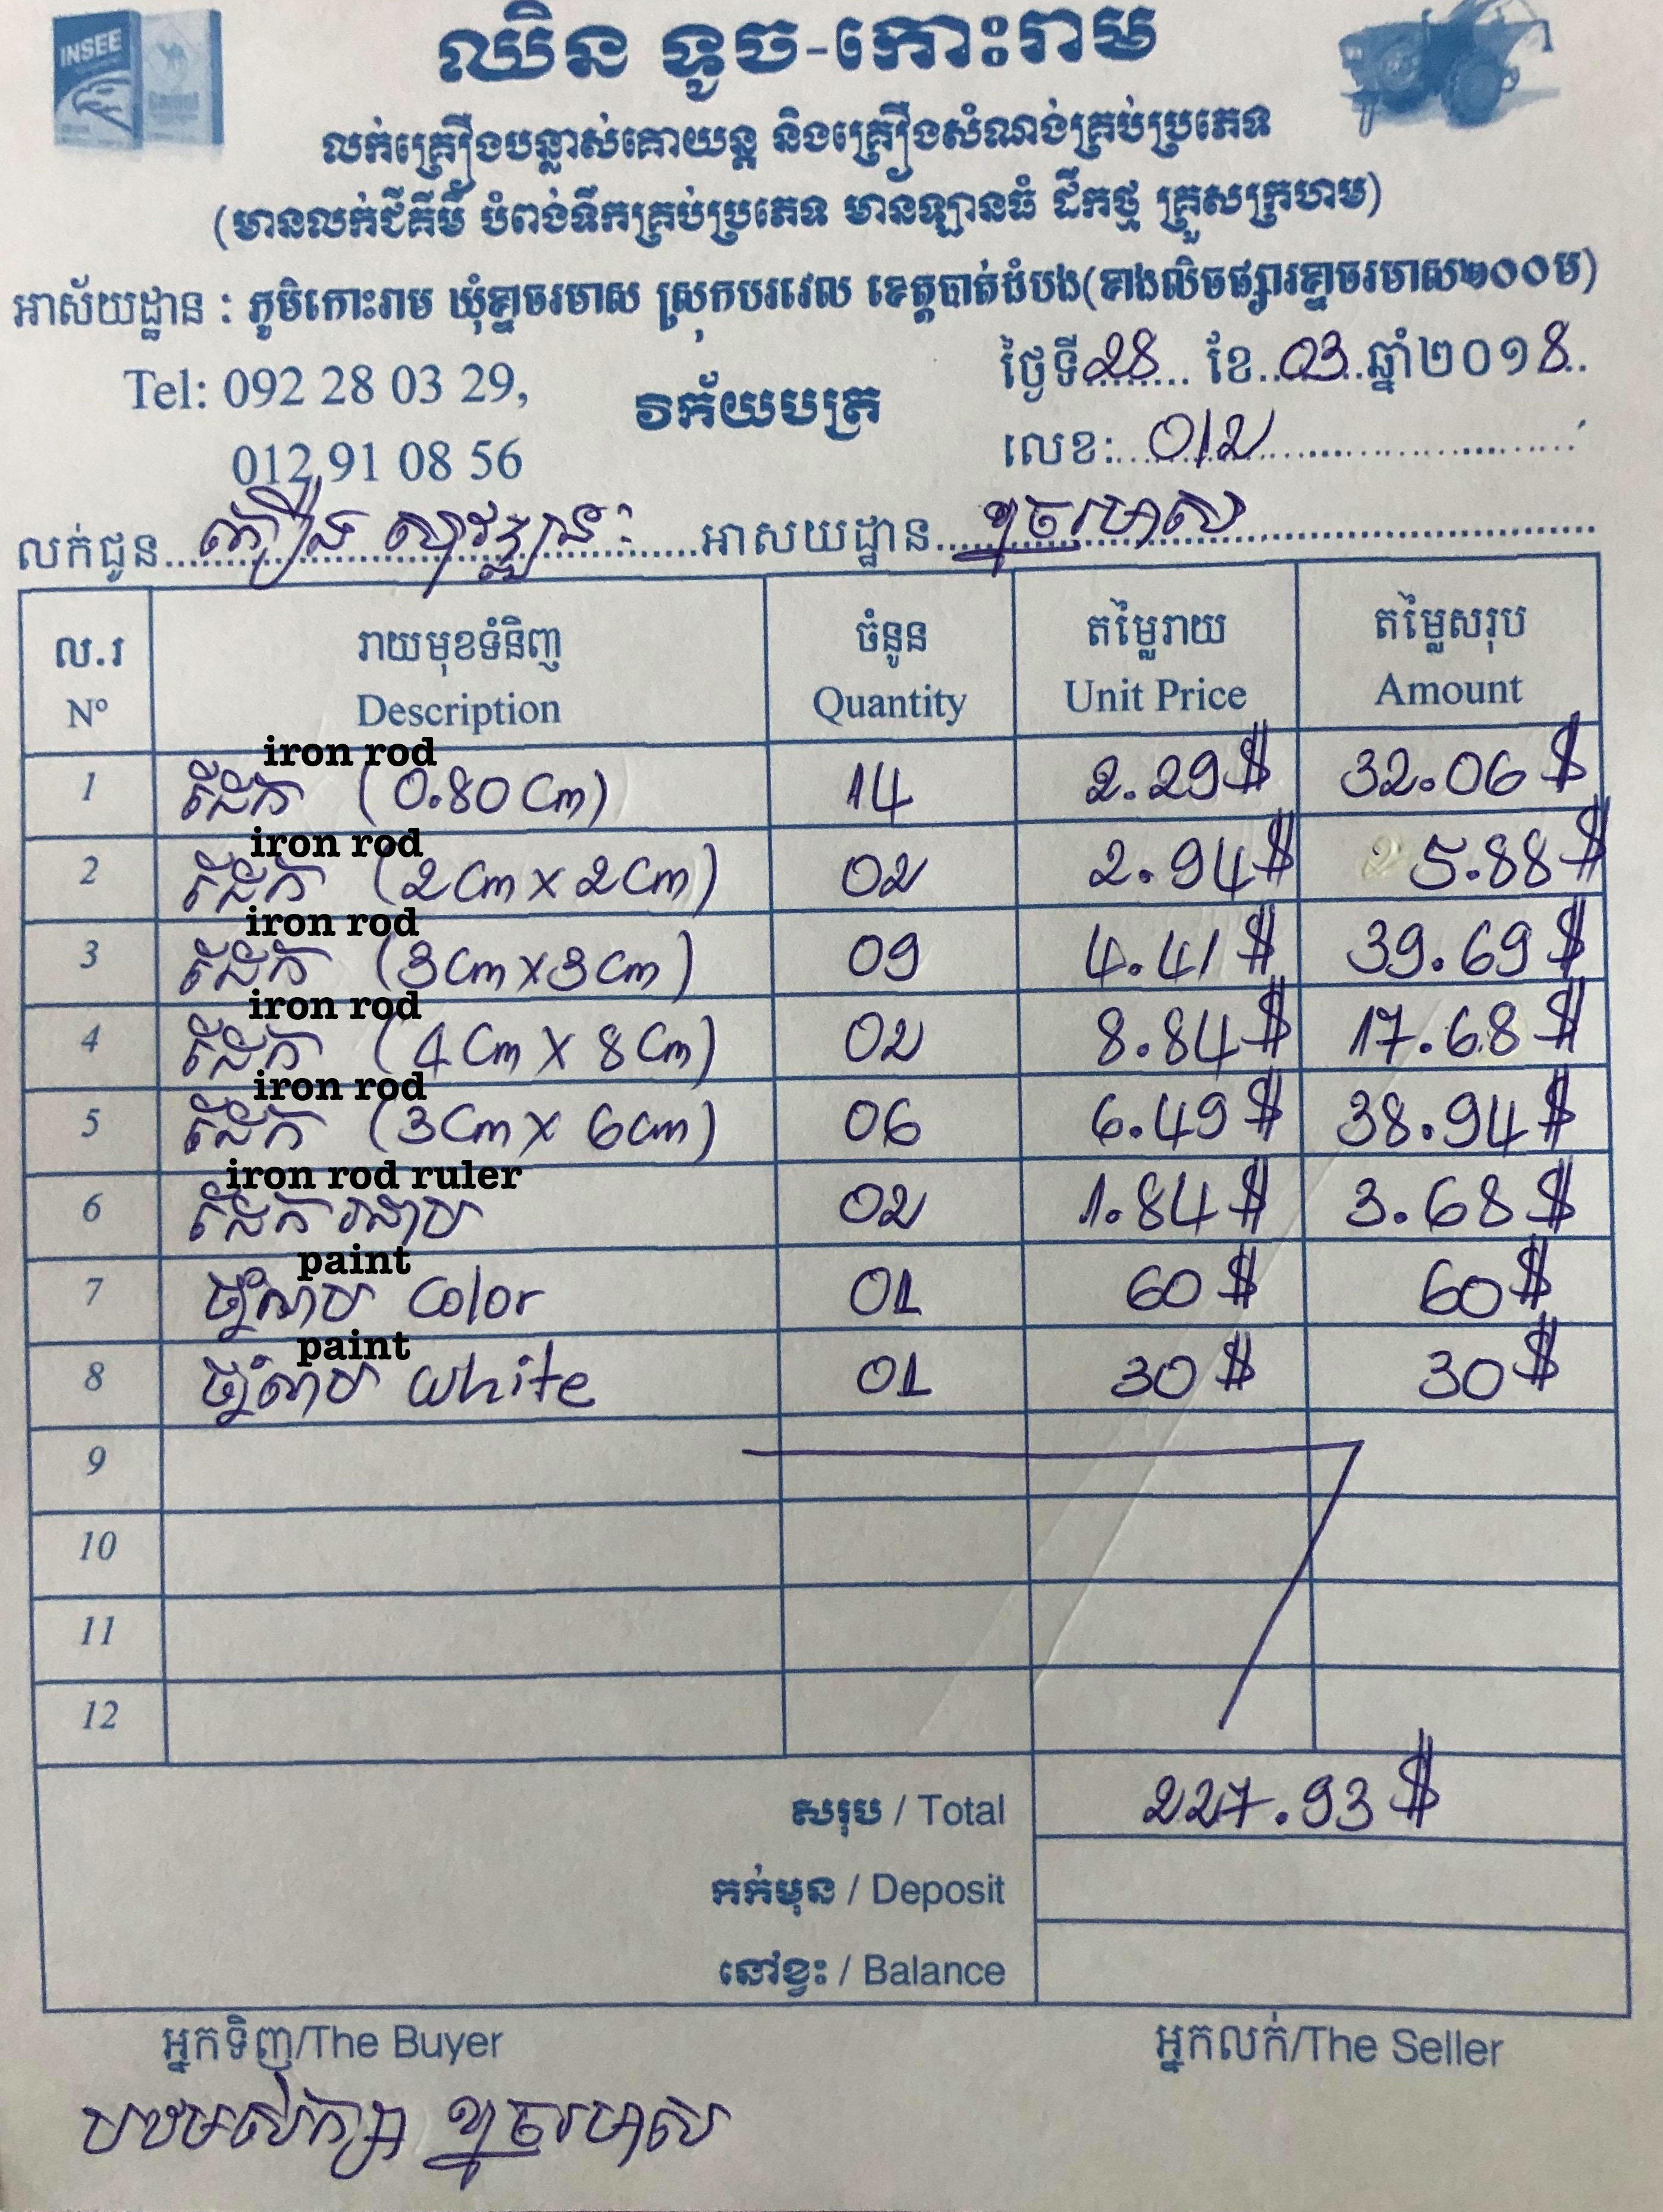 INSEE
Camel
ឈិន ទូច-កោះរាម
លក់គ្រឿងបន្លាស់គោយន្ត និងគ្រឿងសំណង់គ្រប់ប្រភេទ
(មានលក់ជីគីមី បំពង់ទឹកគ្រប់ប្រភេទ មានឡានធំ ដឹកថ្ម គ្រួសក្រហម)
អាស័យដ្ឋាន : ភូមិកោះរាម ឃុំខ្នាចរមាស ស្រុកបរវេល ខេត្តបាត់ដំបង(ខាងលិចផ្សារខ្នាចរមាស២០០ម)
Tel: 092 28 03 29,
012 91 08 56
វិក័យបត្រ
ថ្ងៃទី 28 ខែ 03 ឆ្នាំ២០១8
លេខ: 012
លក់ជូន អាសយដ្ឋាន ខ្នាចរមាស
ល.រ រាយមុខទំនិញ ចំនួន តម្លៃរាយ តម្លៃសរុប
Nº Description Quantity Unit Price Amount
iron rod
1 ដែក (0.80 Cm) 14 2.29$ 32.06$
iron rod
2 ដែក (2Cm x 2Cm) 02 2.94$ 5.88$
iron rod
3 ដែក (3Cm x 3Cm) 09 4.41$ 39.69$
iron rod
4 ដែក (4Cm x 8Cm) 02 8.84$ 17.68$
iron rod
5 ដែក (3Cm x 6cm) 06 6.49$ 38.94$
iron rod ruler
6 ដែក រនាប 02 1.84$ 3.68$
paint
7 ថ្នាំលាប Color 01 60$ 60$
paint
8 ថ្នាំលាប White 01 30$ 30$
9
10
11
12
សរុប / Total 227.93$
កក់មុន / Deposit
នៅខ្វះ / Balance
អ្នកទិញ/The Buyer អ្នកលក់/The Seller
បឋមសិក្សា ខ្នាចរមាស